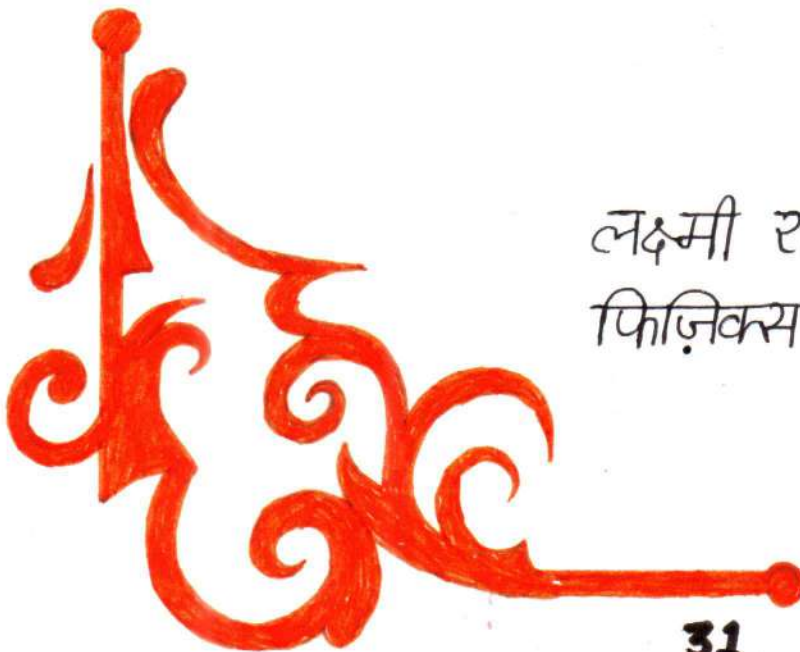 लक्ष्मी
फिज़िक्स
31